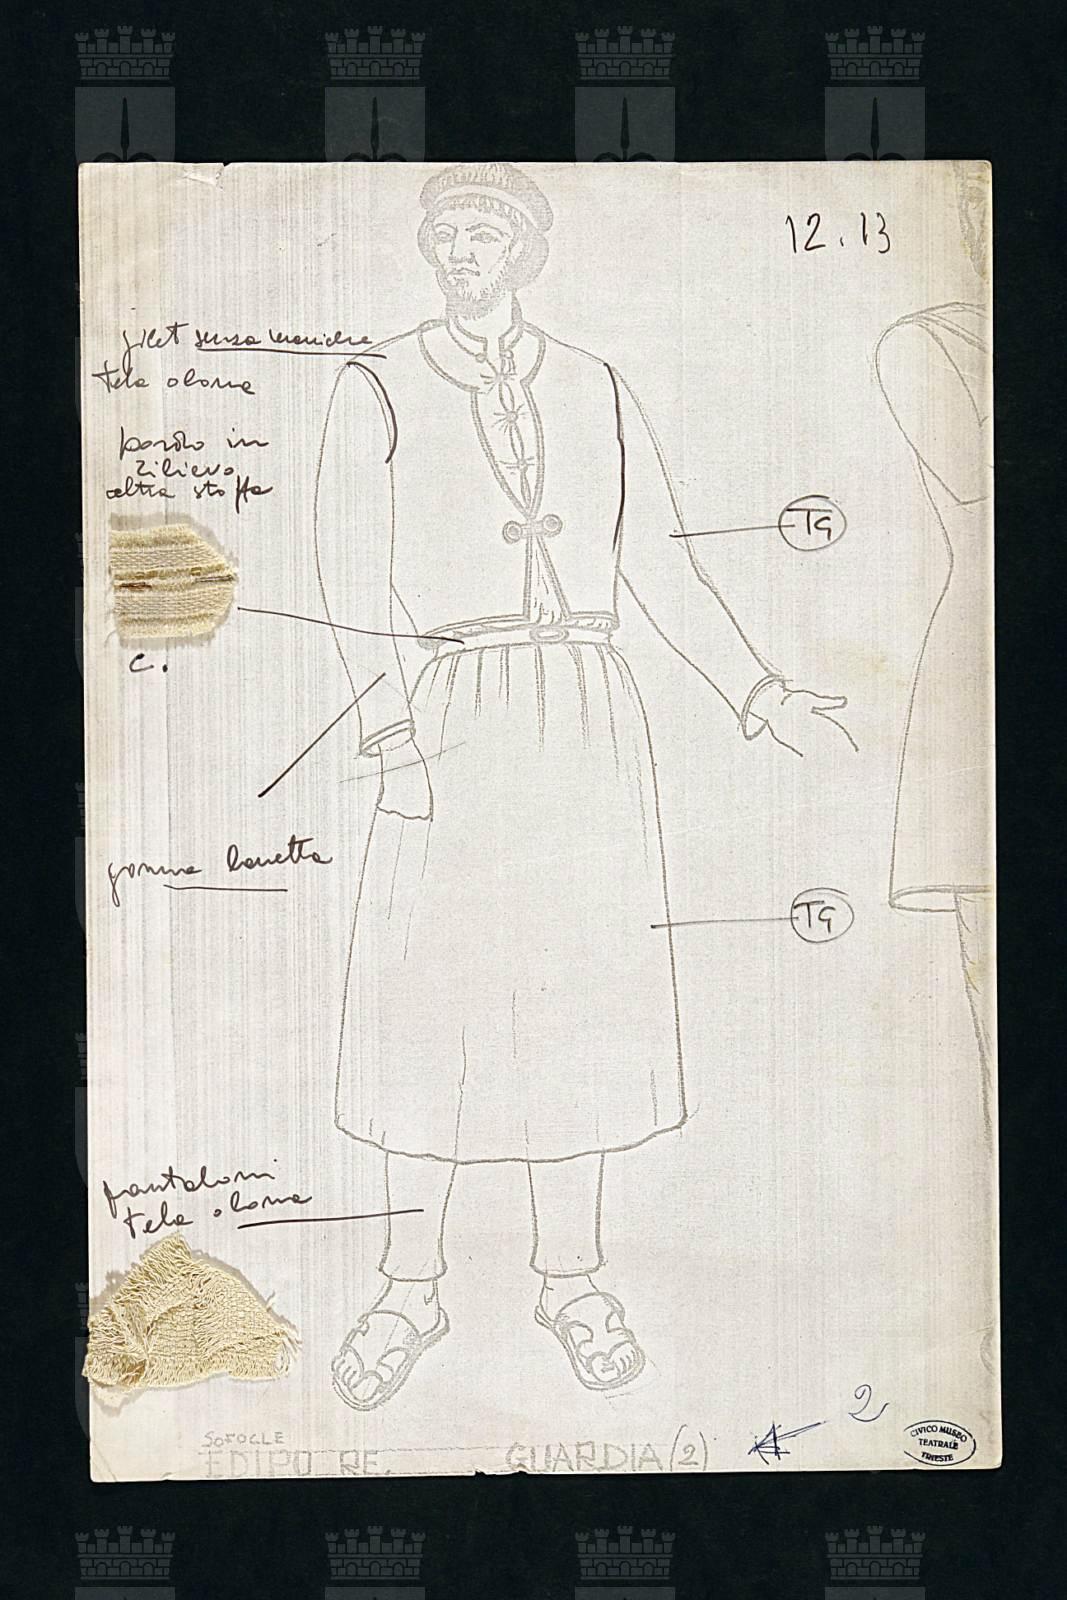 12.13
gilet senza maniche
tela olona
bordo in
rilievo
altra stoffa
TG
c.
gonna lanetta
TG
pantaloni
tela olona
2
SOFOCLE
EDIPO RE.
GUARDIA (2)
CIVICO MUSEO
TEATRALE
TRIESTE